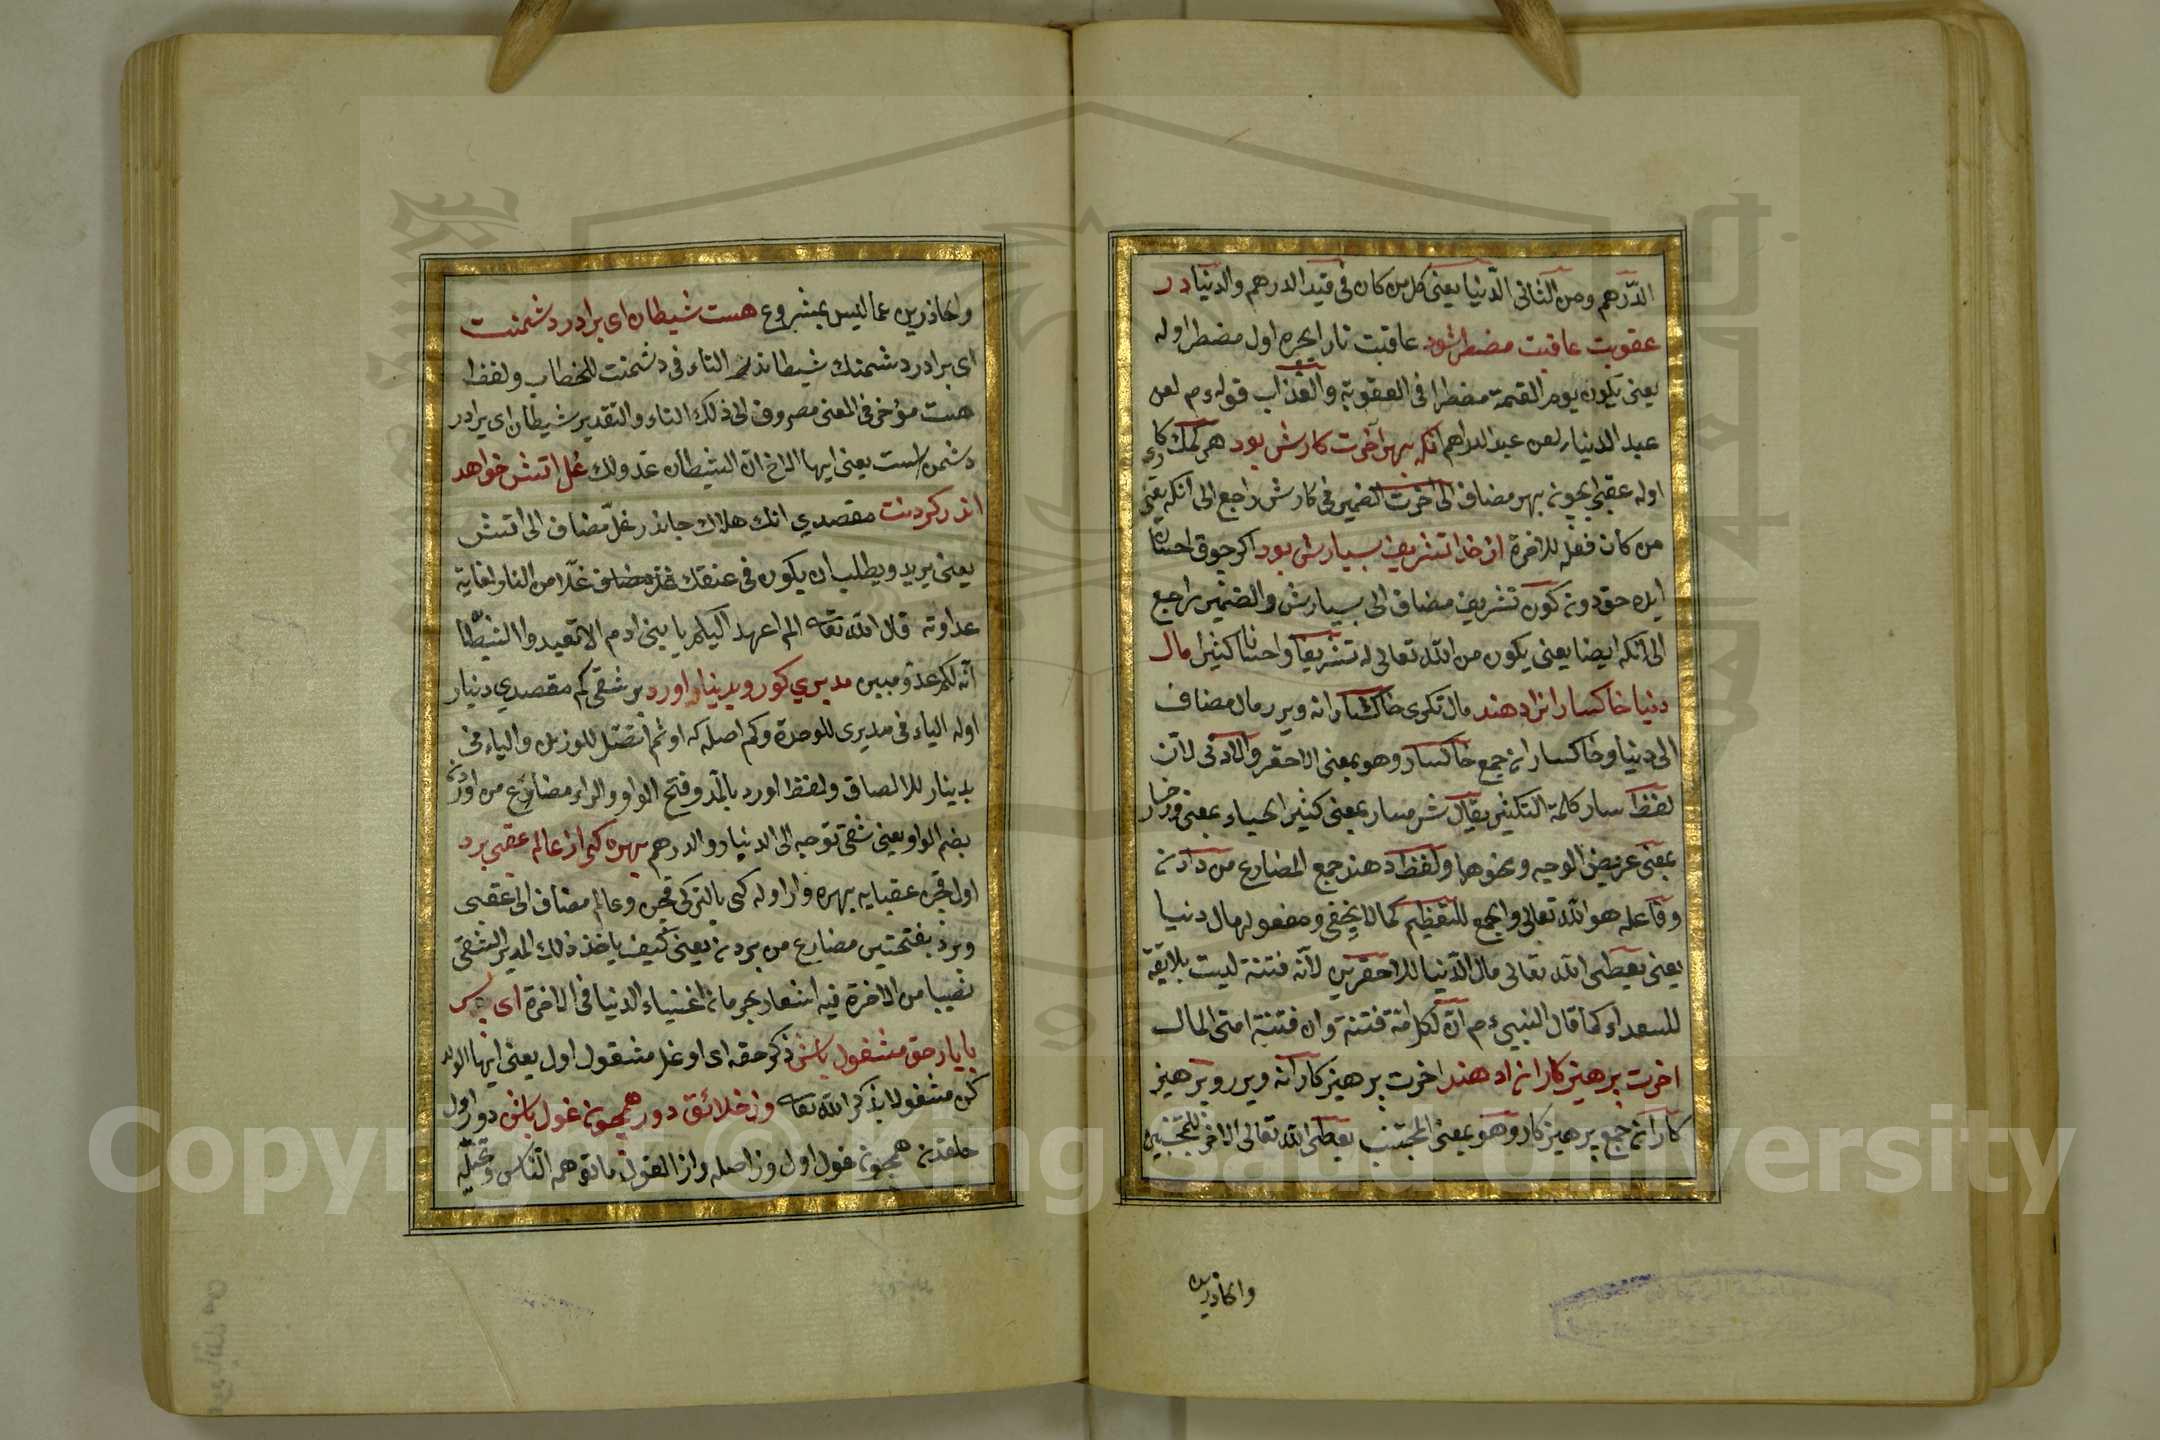 الدّرهم ومن الثانى الدّنيا يعنى كل من كان فى قيد الدرهم والدنيا در
عقوبت عاقبت مضطر شود عاقبت نار ايچره اول مضطر اوله
يعنى يكون يوم القيمة مضطرا فى العقوبة والعذاب قوله عم لعن
عبد الدينار لعن عبد الدراهم آنكه بهر آخرت كارش بود هر كمك كا
اوله عقبى ايچون بهر مضاف الى اخرت الضمير فى كارش راجع الى آنكه يعنى
من كان فعله للاخرة از خدا تشريف بسيارش بود اكر چوق احسان
ايده حق دونه كون تشريف مضاف الى بسيارش والضمير راجع
الى آنكه ايضا يعنى يكون من الله تعالى له تشريفا واحسانا كثيرا مال
دنيا خاكسارانرا دهند مال تكرى خاكسارانه ويرر مال مضاف
الى دنيا وخاكساران جمع خاكسار وهو بمعنى الاحقر والادنى لانّ
لفظ سار كلمة التكثير يقال شرمسار بمعنى كثير الحياء بمعنى ورخسار
بمعنى عريض الوجيه ونحوها ولفظ دهند جمع المضارع من دادن
وفاعله هو الله تعالى والجمع للتعظيم كما لا يخفى ومفعوله مال دنيا
يعنى يعطى الله تعالى مال الدّنيا للاحقرين لانّه فتنة ليست بلايقة
للسعداء كما قال النبى عم انّ لكل امّة فتنة وان فتنة امتى المال
اخرت پرهيز كارانرا دهند اخرت پرهيز كارانه ويرر وپرهيز
كاران جمع پرهيز كار وهو بمعنى المجتنب يعطى الله تعالى الاخرة للمجتنبين
والحاذرين
والحاذرين عما ليس بمشروع هست شيطان اى برادر دشمنت
اى برادر دشمنك شيطاندر التاء فى دشمنت للخطاب ولفظ
هست مؤخر فى المعنى مصروف الى ذلك التاء والتقدير شيطان اى برادر
دشمن است يعنى ايها الاخ انّ الشيطان عدولك غل اتش خواهد
اندر كردنت مقصدي انك هلاك جاندر غلّ مضاف الى اتش
يعنى يريد ويطلب ان يكون فى عنقك غلّا من النار لغاية
عداوته قال الله تعالى الم اعهد اليكم يا بنى ادم الا تعبدوا الشيطان
انّه لكم عدو مبين مدبري كو رو بدينار اورد بر شقى كم مقصدي دينار
اوله الياء فى مدبرى للوحدة وكم اصله كه او ثم انتقل للوزن والياء فى
بدينار للالصاق ولفظ اورد بالمدّ وفتح الواو والراء مضارع من اوردن
بضم الواو يعنى شقى توجه الى الدينار والدرهم بهره كى از عالم عقبى برد
اول قچن عقبايه بهره وار اوله كى بالتركى قچن وعالم مضاف الى عقبى
وبرد بفتحتين مضارع من بردن يعنى كيف ياخذ ذلك المدبر الشقى
نصيبا من الاخرة فيه اشعار بحرمان اغنياء الدنيا فى الاخرة اى پسر
با ياد حق مشغول باش ذكر حقه اى اوغل مشغول اول يعنى ايها الولد
كن مشغولا بذكر الله تعالى وز خلائق دور همچون غول باش دور اول
خلقدن همچون غول اول وز اصله واز الغول ما توهمه الناس وتخيله